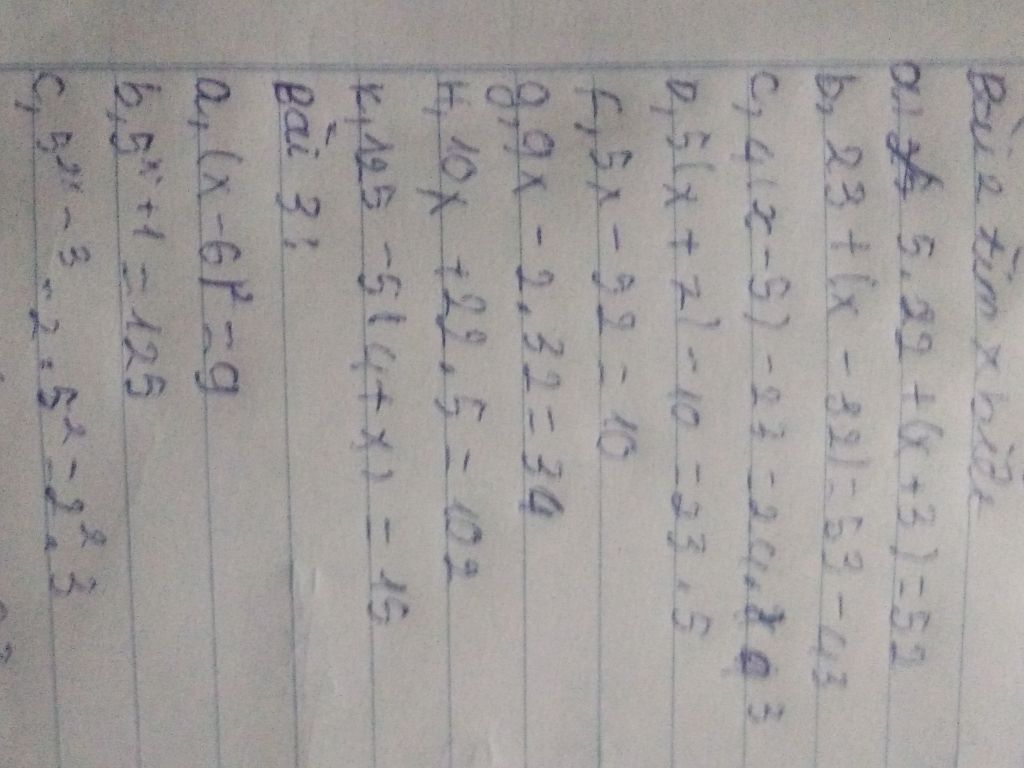 Bài 2 tìm x biết
a, 5.22 + (x + 3) = 52
b, 23 + (x - 32) = 53 - 43
c, 4(x - 5) - 23 = 24. 3
D, 5(x + 7) - 10 = 23.5
f, 5x - 32 = 10
g, 9x - 2.32 = 34
H, 10x + 22.5 = 102
K, 125 - 5(4 + x) = 15
Bài 3:
a, (x - 6)² = 9
b, 5ˣ⁺¹ = 125
c, 5²ˣ⁻³ - 2.5² = 2².3